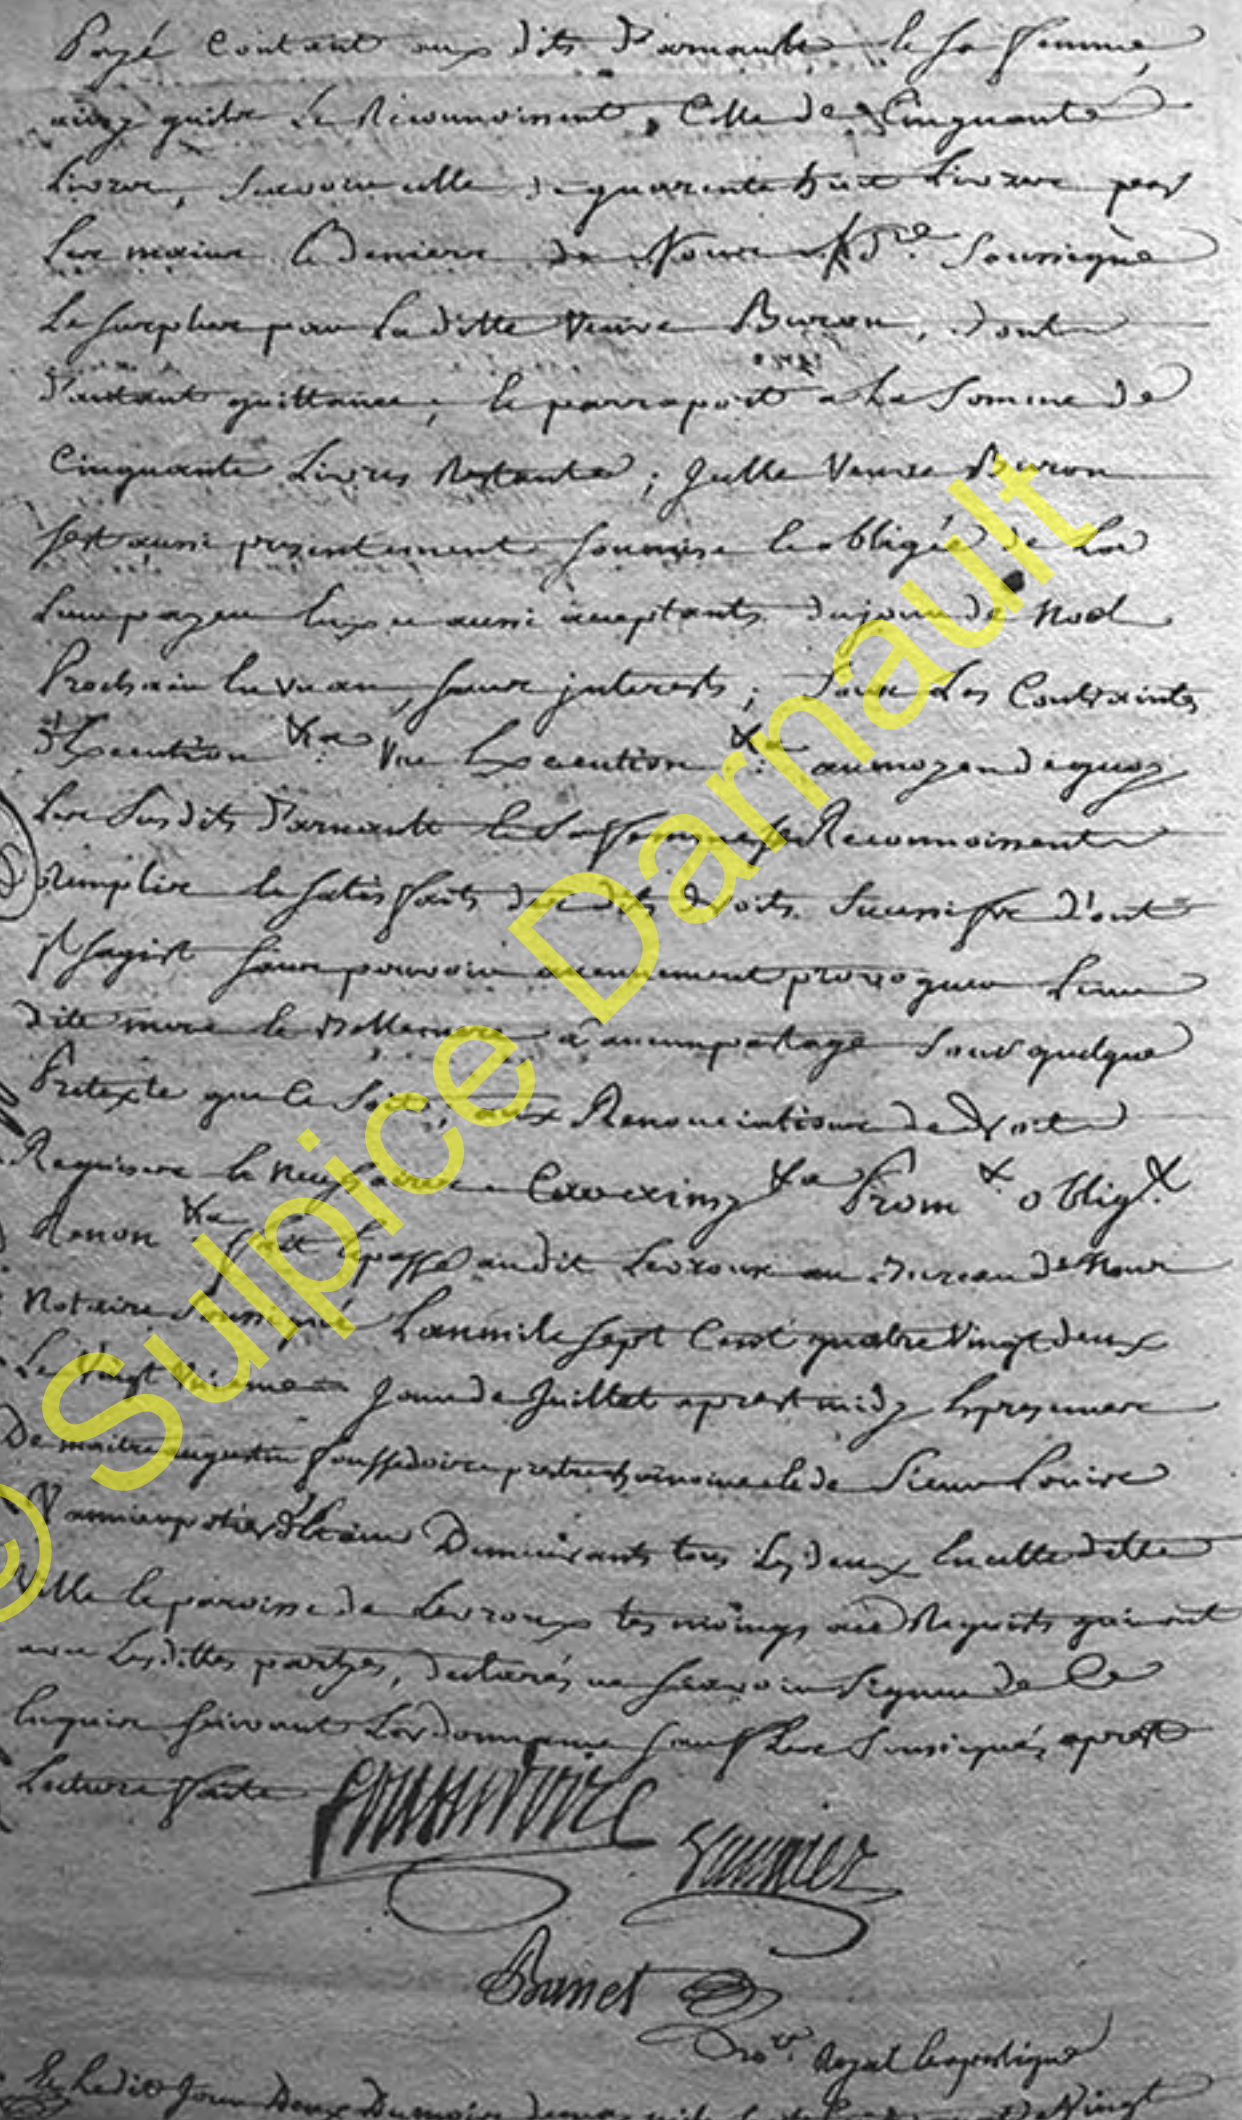 Payé Contant aux dits Darnault & sa femme,
ainsy qu'ils Le Reconnoissent, Celle de Cinquante
Livres, Sçavoir celle de quarente huit Livres par
Les mains & Deniers de Nous No.re Soussigné
Le surplus par La ditte Veuve Buron, dont
D'autant quittance, & par raport a La Somme de
Cinquante Livres Restante; Jcelle Veuve Buron
s'est aussi presentement soumise & obligée de La
Leur payer Eux aussi acceptants du jour de Noel
Prochain En un an, sans jnterests; sous Les Contraintes
D'Execution &a Une Execution &a au moyen de quoy
Les Susdits Darnault & Sa femme se Reconnoissent
Remplis & satisfaits des dits droits Successifs d'ont
jl s'agist sans pouvoir aucunement provoquer Leur
dite mere à aucun partage Sous quelque
Pretexte que Ce Soit, aux Renonciations de Droit
Requises & necessaires Car ainsy &a Prom & oblig &
Renon &a fait & passé audit Levroux au Bureau de Nous
Notaire Soussigné L'an mil sept Cent quatre Vingt deux
Le Vingt jour de Juillet aprest midy Es presences
De maitre augustin Poussedoire prestre chanoine & de Sieur Louis
Vannier potier d'Etain Demeurants tous Les deux En cette ditte
Ville & paroisse de Levroux tesmoings Requits qui ont
avec Lesdittes partyes, declarés ne sçavoir Signer de Ce
Enquis suivant L'ordonnance sauf Les Soussignés aprest
Lecture faite
Poussedoire
Vannier
Banet
No.re Royal
Ledit Jour Deux Du mois Vingt
© Sulpice Darnault